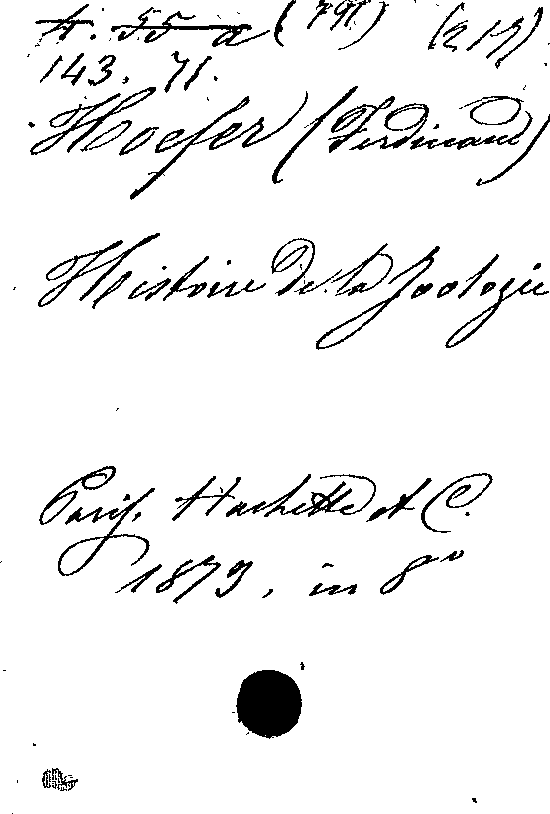 4. 55 a (791) (217)
143. 71.
Hoefer (Ferdinand)
Histoire de la Zoologie
Paris. Hachette et C.
1873. in 8°